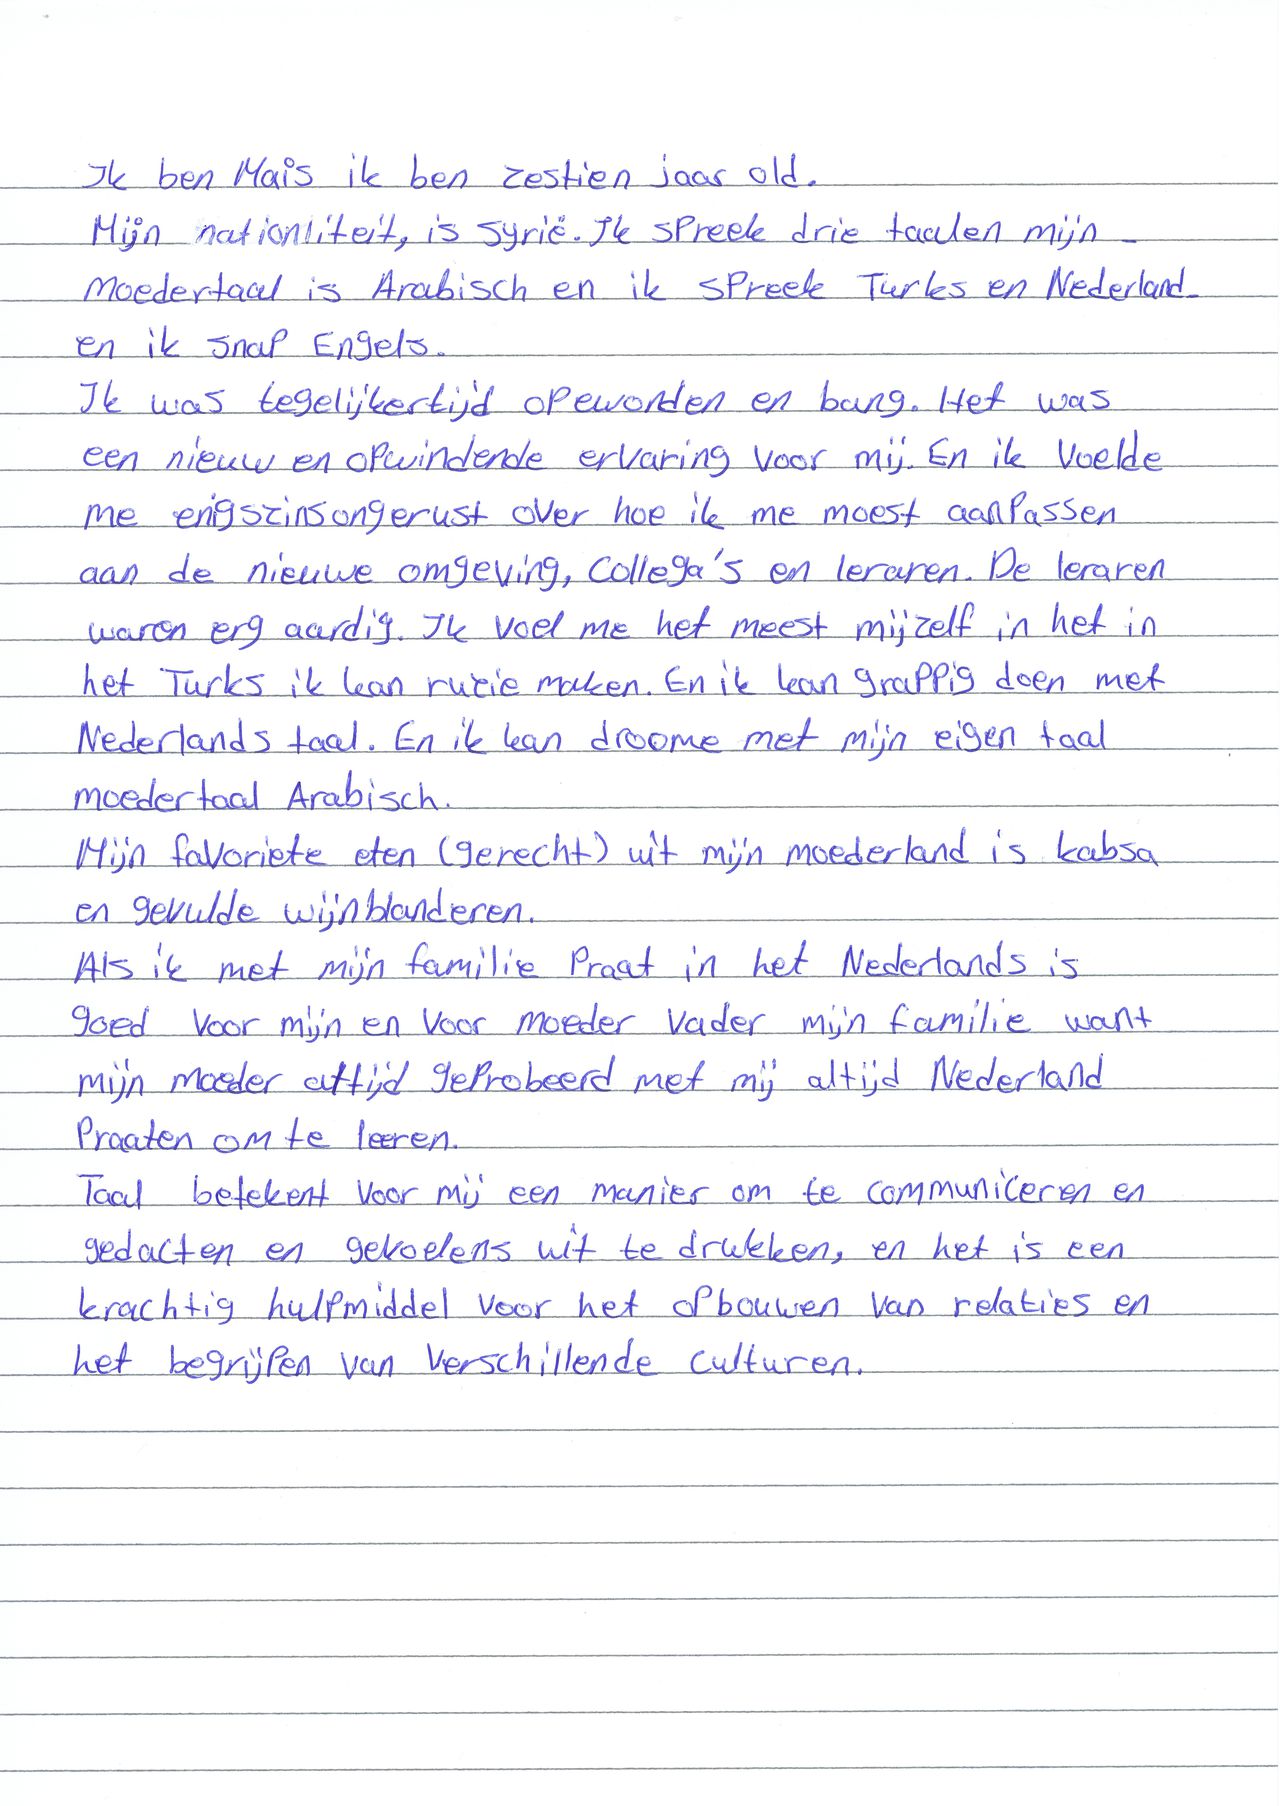 Ik ben Maïs ik ben zestien jaar old.
Mijn nationliteit, is syrië. Ik spreek drie taalen mijn
moedertaal is Arabisch en ik spreek Turks en Nederland
en ik snap Engels.
Ik was tegelijkertijd opeworden en bang. Het was
een nieuw en opwindende ervaring voor mij. En ik voelde
me enigszinsongerust over hoe ik me moest aanpassen
aan de nieuwe omgeving, collega's en leraren. De leraren
waren erg aardig. Ik voel me het meest mijzelf in het in
het Turks ik kan ruzie maken. En ik kan grappig doen met
Nederlands taal. En ik kan droome met mijn eigen taal
moedertaal Arabisch.
Mijn favoriete eten (gerecht) uit mijn moederland is kabsa
en gevulde wijnblanderen.
Als ik met mijn familie praat in het Nederlands is
goed voor mijn en voor moeder vader mijn familie want
mijn moeder altijd geprobeerd met mij altijd Nederland
praaten om te leeren.
Taal betekent voor mij een manier om te communiceren en
gedacten en gevoelens uit te drukken, en het is een
krachtig hulpmiddel voor het opbouwen van relaties en
het begrijpen van verschillende culturen.